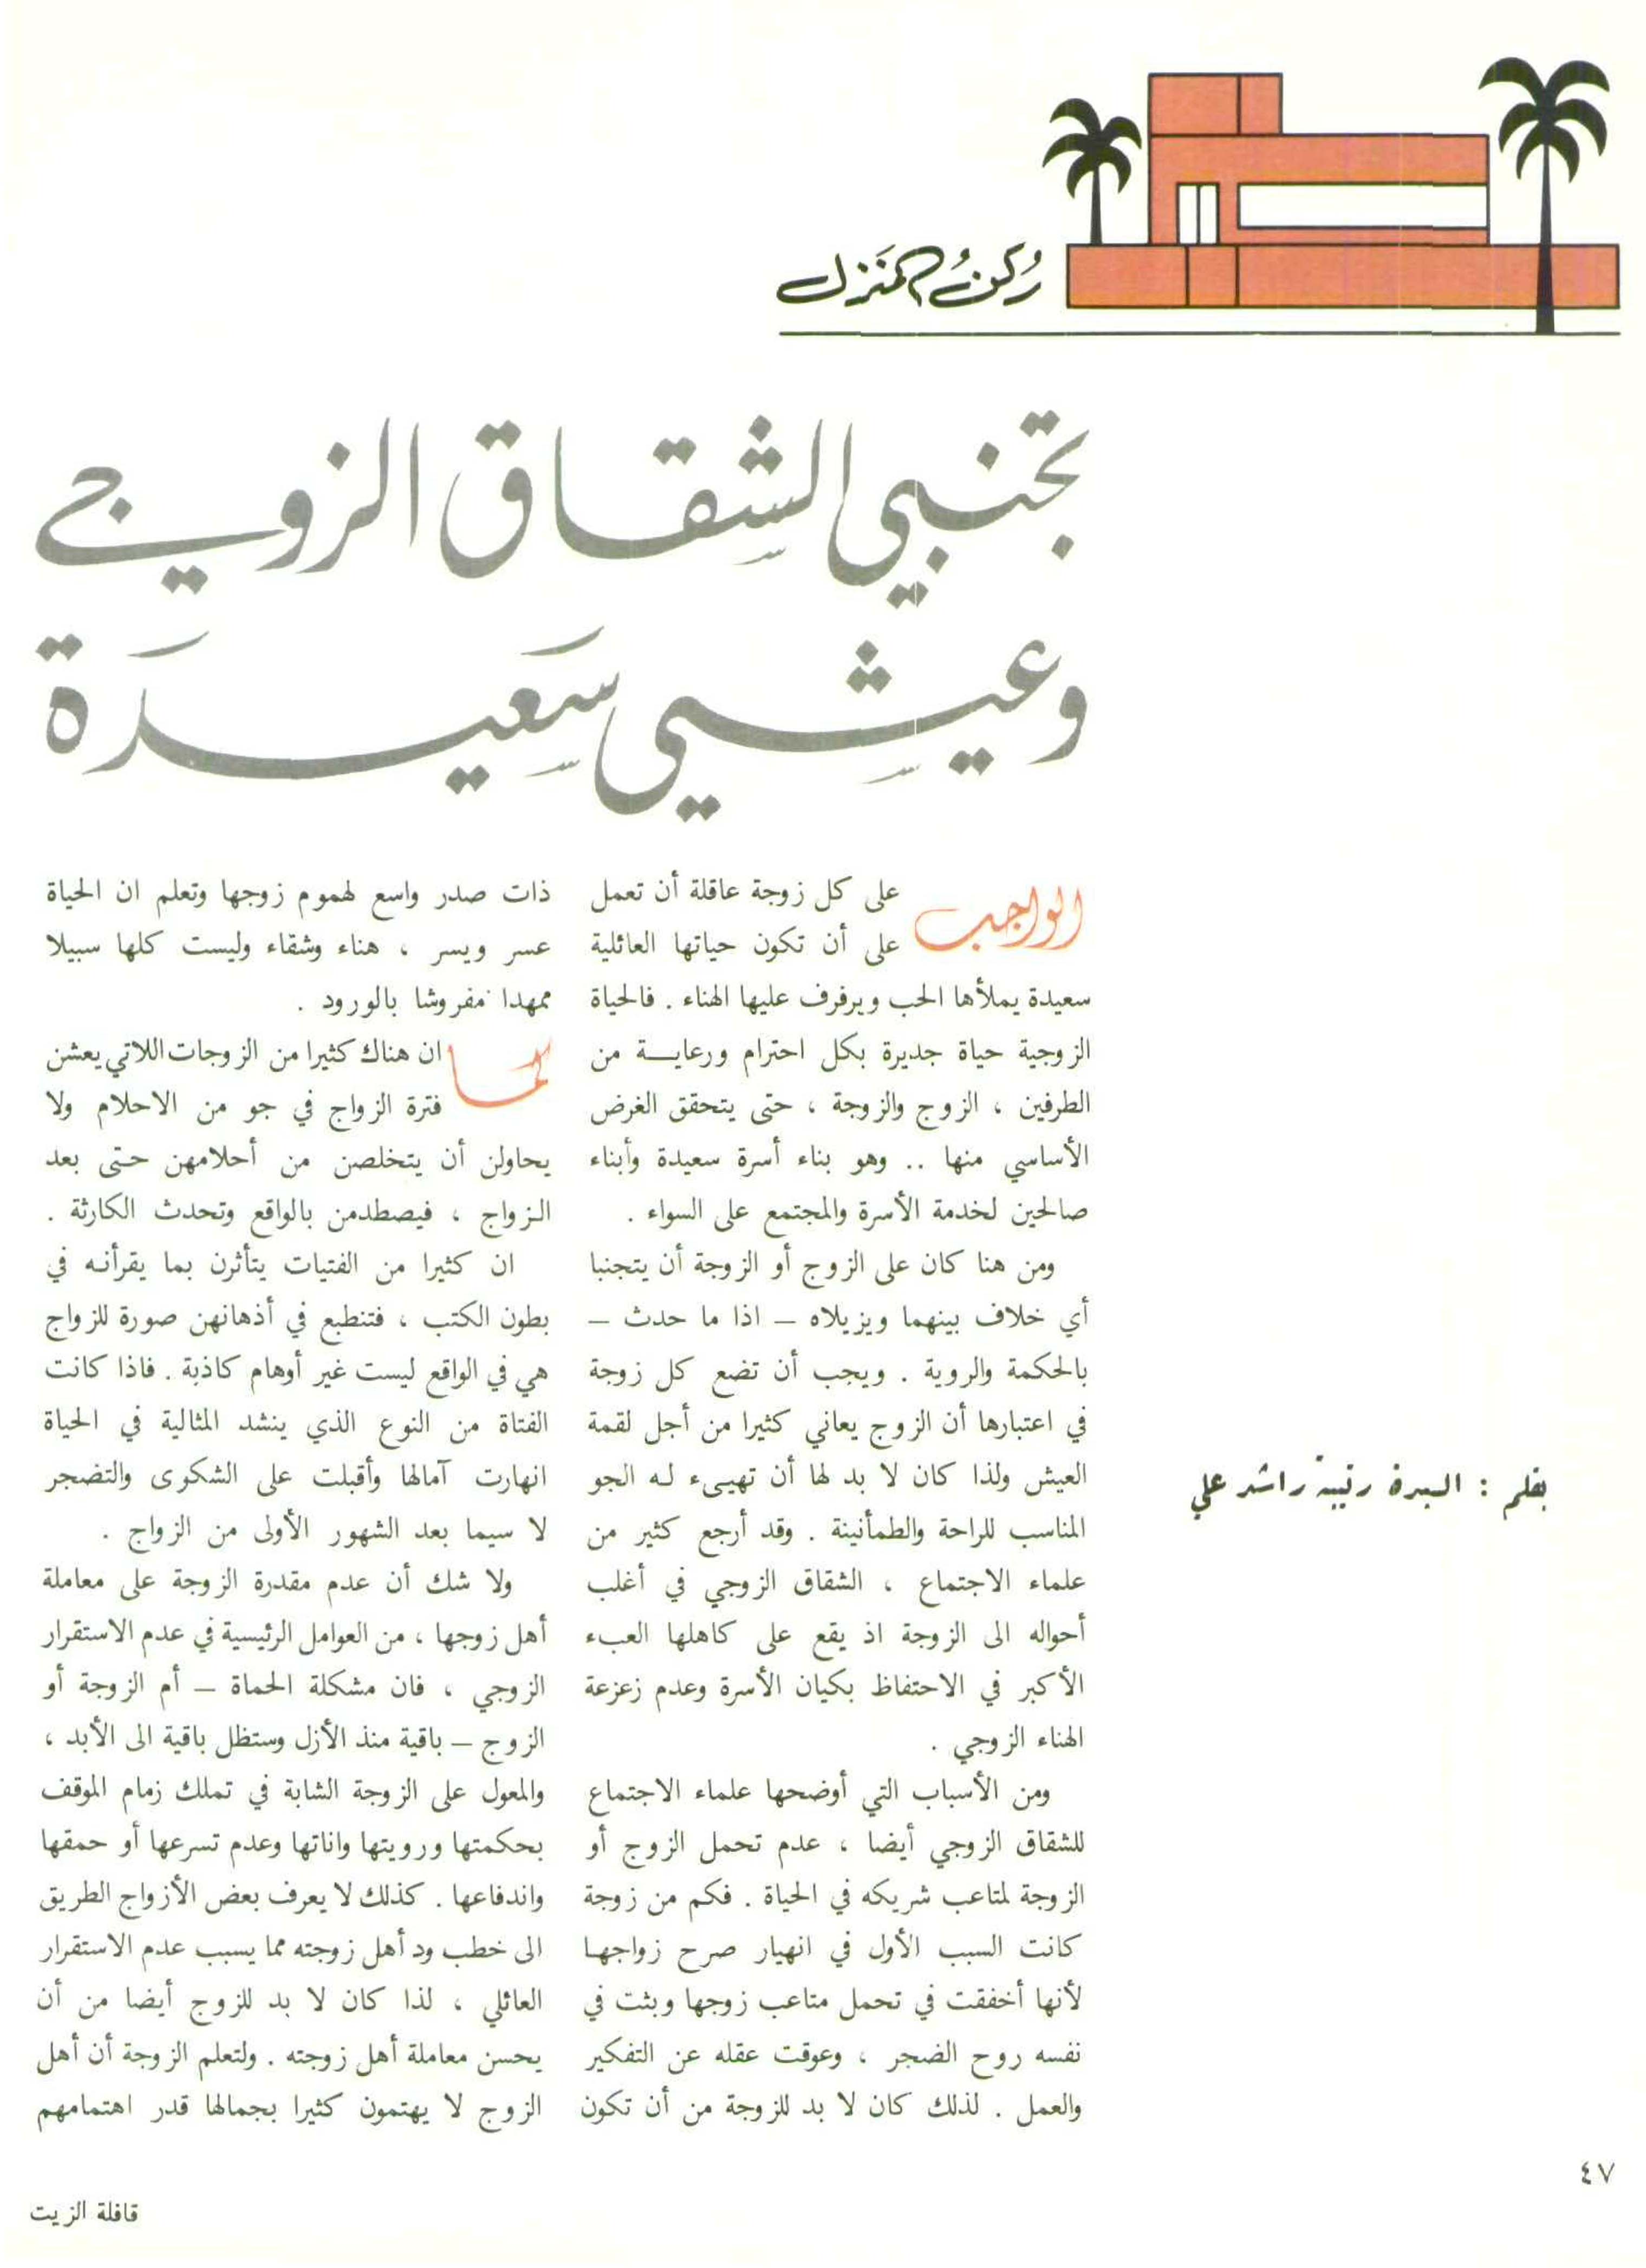 ركن المنزل
تجنبي الشقاق الزوجي
وعيشي سعيدة
بقلم : السيدة رتيبة راشد علي
الواجب على كل زوجة عاقلة أن تعمل
على أن تكون حياتها العائلية
سعيدة يملأها الحب ويرفرف عليها الهناء . فالحياة
الزوجية حياة جديرة بكل احترام ورعايــة من
الطرفين ، الزوج والزوجة ، حتى يتحقق الغرض
الأساسي منها .. وهو بناء أسرة سعيدة وأبناء
صالحين لخدمة الأسرة والمجتمع على السواء .
ومن هنا كان على الزوج أو الزوجة أن يتجنبا
أي خلاف بينهما ويزيلاه – اذا ما حدث –
بالحكمة والروية . ويجب أن تضع كل زوجة
في اعتبارها أن الزوج يعاني كثيرا من أجل لقمة
العيش ولذا كان لا بد لها أن تهيىء له الجو
المناسب للراحة والطمأنينة . وقد أرجع كثير من
علماء الاجتماع ، الشقاق الزوجي في أغلب
أحواله الى الزوجة اذ يقع على كاهلها العبء
الأكبر في الاحتفاظ بكيان الأسرة وعدم زعزعة
الهناء الزوجي .
ومن الأسباب التي أوضحها علماء الاجتماع
للشقاق الزوجي أيضا ، عدم تحمل الزوج أو
الزوجة لمتاعب شريكه في الحياة . فكم من زوجة
كانت السبب الأول في انهيار صرح زواجها
لأنها أخفقت في تحمل متاعب زوجها وبثت في
نفسه روح الضجر ، وعوقت عقله عن التفكير
والعمل . لذلك كان لا بد للزوجة من أن تكون
ذات صدر واسع لهموم زوجها وتعلم ان الحياة
عسر ويسر ، هناء وشقاء وليست كلها سبيلا
ممهدا مفروشا بالورود .
كما ان هناك كثيرا من الزوجات اللاتي يعشن
فترة الزواج في جو من الاحلام ولا
يحاولن أن يتخلصن من أحلامهن حتى بعد
الزواج ، فيصطدمن بالواقع وتحدث الكارثة .
ان كثيرا من الفتيات يتأثرن بما يقرأنه في
بطون الكتب ، فتنطبع في أذهانهن صورة للزواج
هي في الواقع ليست غير أوهام كاذبة . فاذا كانت
الفتاة من النوع الذي ينشد المثالية في الحياة
انهارت آمالها وأقبلت على الشكوى والتضجر
لا سيما بعد الشهور الأولى من الزواج .
ولا شك أن عدم مقدرة الزوجة على معاملة
أهل زوجها ، من العوامل الرئيسية في عدم الاستقرار
الزوجي ، فان مشكلة الحماة – أم الزوجة أو
الزوج – باقية منذ الأزل وستظل باقية الى الأبد ،
والمعول على الزوجة الشابة في تملك زمام الموقف
بحكمتها ورويتها واناتها وعدم تسرعها أو حمقها
واندفاعها . كذلك لا يعرف بعض الأزواج الطريق
الى خطب ود أهل زوجته مما يسبب عدم الاستقرار
العائلي ، لذا كان لا بد للزوج أيضا من أن
يحسن معاملة أهل زوجته . ولتعلم الزوجة أن أهل
الزوج لا يهتمون كثيرا بجمالها قدر اهتمامهم
٤٧
قافلة الزيت